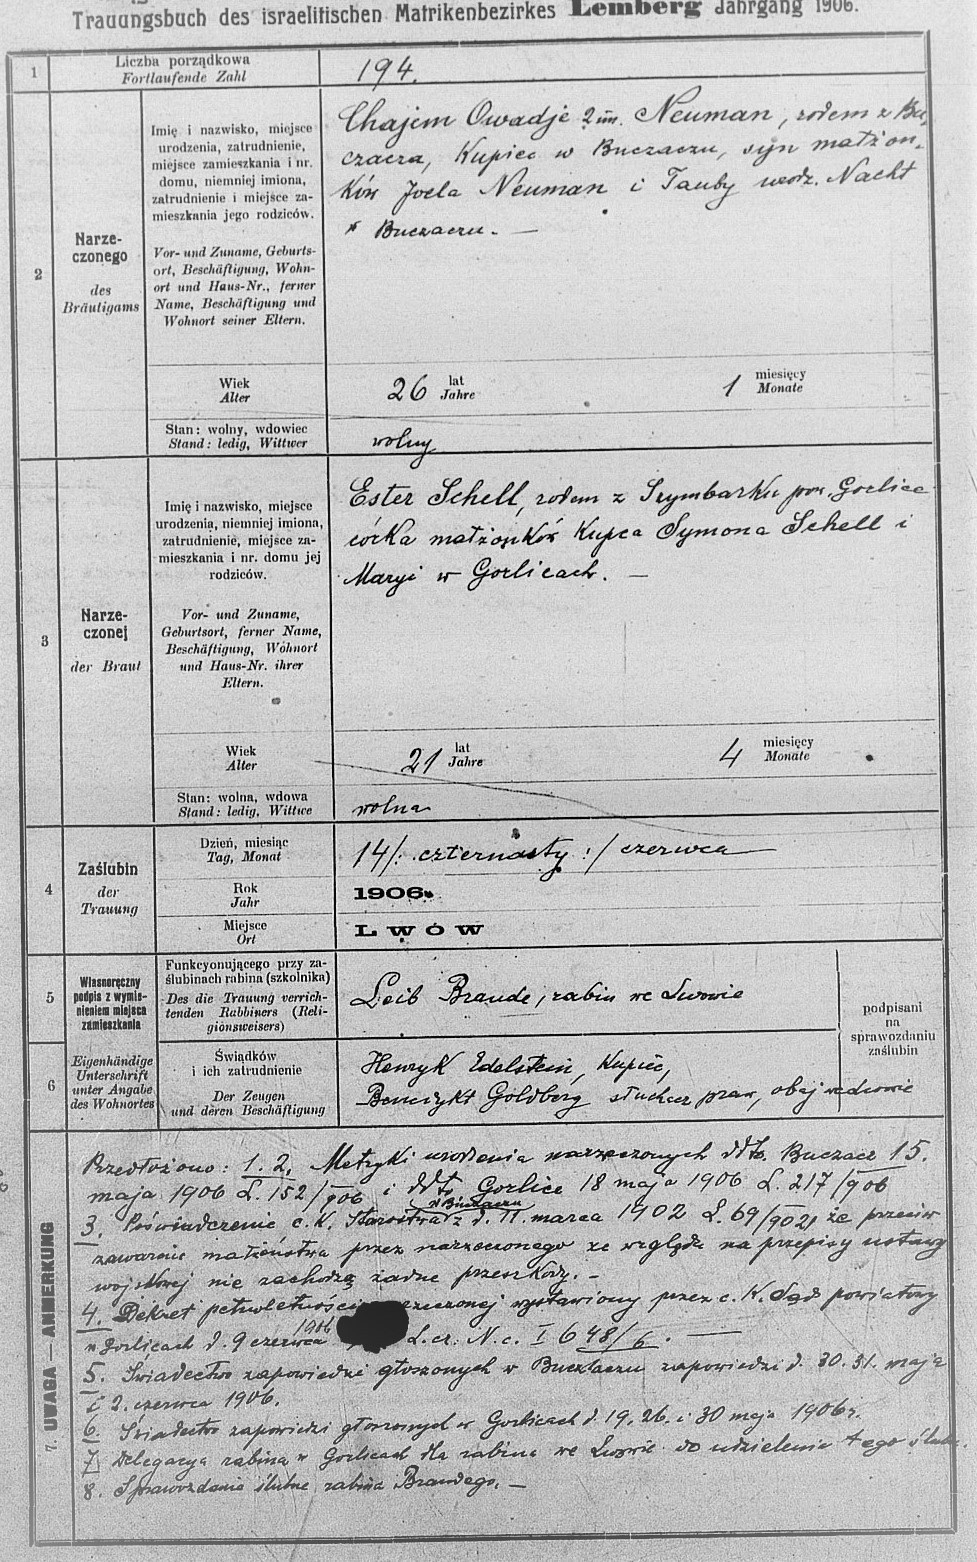 Trauungsbuch des israelitischen Matrikenbezirkes Lemberg Jahrgang 1906.
1
Liczba porządkowa
Fortlaufende Zahl
194.
2
Narze-
czonego
des
Bräutigams
Imię i nazwisko, miejsce
urodzenia, zatrudnienie,
miejsce zamieszkania i nr.
domu, niemniej imiona,
zatrudnienie i miejsce za-
mieszkania jego rodziców.
Vor- und Zuname, Geburts-
ort, Beschäftigung, Wohn-
ort und Haus-Nr., ferner
Name, Beschäftigung und
Wohnort seiner Eltern.
Chajem Owadje 2 im. Neuman, rodem z Bu-
czacza, Kupiec w Buczaczu, syn małżon-
ków Joela Neuman i Tauby urodz. Nacht
w Buczaczu. —
Wiek
Alter
26 lat
Jahre
1 miesięcy
Monate
Stan: wolny, wdowiec
Stand: ledig, Wittwer
wolny
3
Narze-
czonej
der Braut
Imię i nazwisko, miejsce
urodzenia, niemniej imiona,
zatrudnienie, miejsce za-
mieszkania i nr. domu jej
rodziców.
Vor- und Zuname,
Geburtsort, ferner Name,
Beschäftigung, Wohnort
und Haus-Nr. ihrer
Eltern.
Ester Schell, rodem z Szymbarku pow. Gorlice
córka małżonków Kupca Symona Schell i
Maryi w Gorlicach. —
Wiek
Alter
21 lat
Jahre
4 miesięcy
Monate
Stan: wolna, wdowa
Stand: ledig, Wittwe
wolna
4
Zaślubin
der
Trauung
Dzień, miesiąc
Tag, Monat
14/: czternasty :/ czerwca
Rok
Jahr
1906.
Miejsce
Ort
LWÓW
5
Własnoręczny
podpis z wymie-
nieniem miejsca
zamieszkania
Funkcyonującego przy za-
ślubinach rabina (szkolnika)
Des die Trauung verrich-
tenden Rabbiners (Reli-
gionsweisers)
Leib Braude, rabin we Lwowie
podpisani
na
sprawozdaniu
zaślubin
6
Eigenhändige
Unterschrift
unter Angabe
des Wohnortes
Świadków
i ich zatrudnienie
Der Zeugen
und deren Beschäftigung
Henryk Edelstein, Kupiec,
Benedykt Goldberg słuchacz praw, obaj we Lwowie
7. UWAGA — ANMERKUNG
Przedłożono: 1. 2. Metryki urodzenia narzeczonych ddto. Buczacz 15.
maja 1906 L. 152/906 i ddto Gorlice 18 maja 1906 L. 217/906
3. Poświadczenie c. K. Starostwa w Buczaczu z d. 11. marca 1902 L. 69/902, że przeciw
zawarciu małżeństwa przez narzeczonego ze względu na przepisy ustawy
wojskowej nie zachodzą żadne przeszkody. —
4. Dekret pełnoletności narzeczonej wystawiony przez c. K. Sąd powiatowy
w Gorlicach d. 9 czerwca 1906 L. cz. N. c. I 648/6. —
5. Świadectwo zapowiedzi głoszonych w Buczaczu zapowiedzi d. 30. 31. maja
i 2. czerwca 1906.
6. Świadectwo zapowiedzi głoszonych w Gorlicach d. 19. 26. i 30 maja 1906 r.
7. Delegacya rabina w Gorlicach dla rabina we Lwowie do udzielenia tego ślubu.
8. Sprawozdanie ślubne rabina Braudego. —